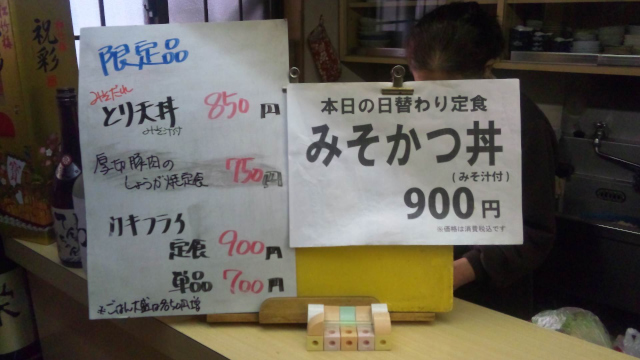 限定品
みそだれ
とり天丼 850円
みそ汁付
厚切豚肉の
しょうが焼定食 750円
カキフライ
定食 900円
単品 700円
※ごはん大盛は各50円増
本日の日替わり定食
みそかつ丼
(みそ汁付)
900円
※価格は消費税込です
祝彩